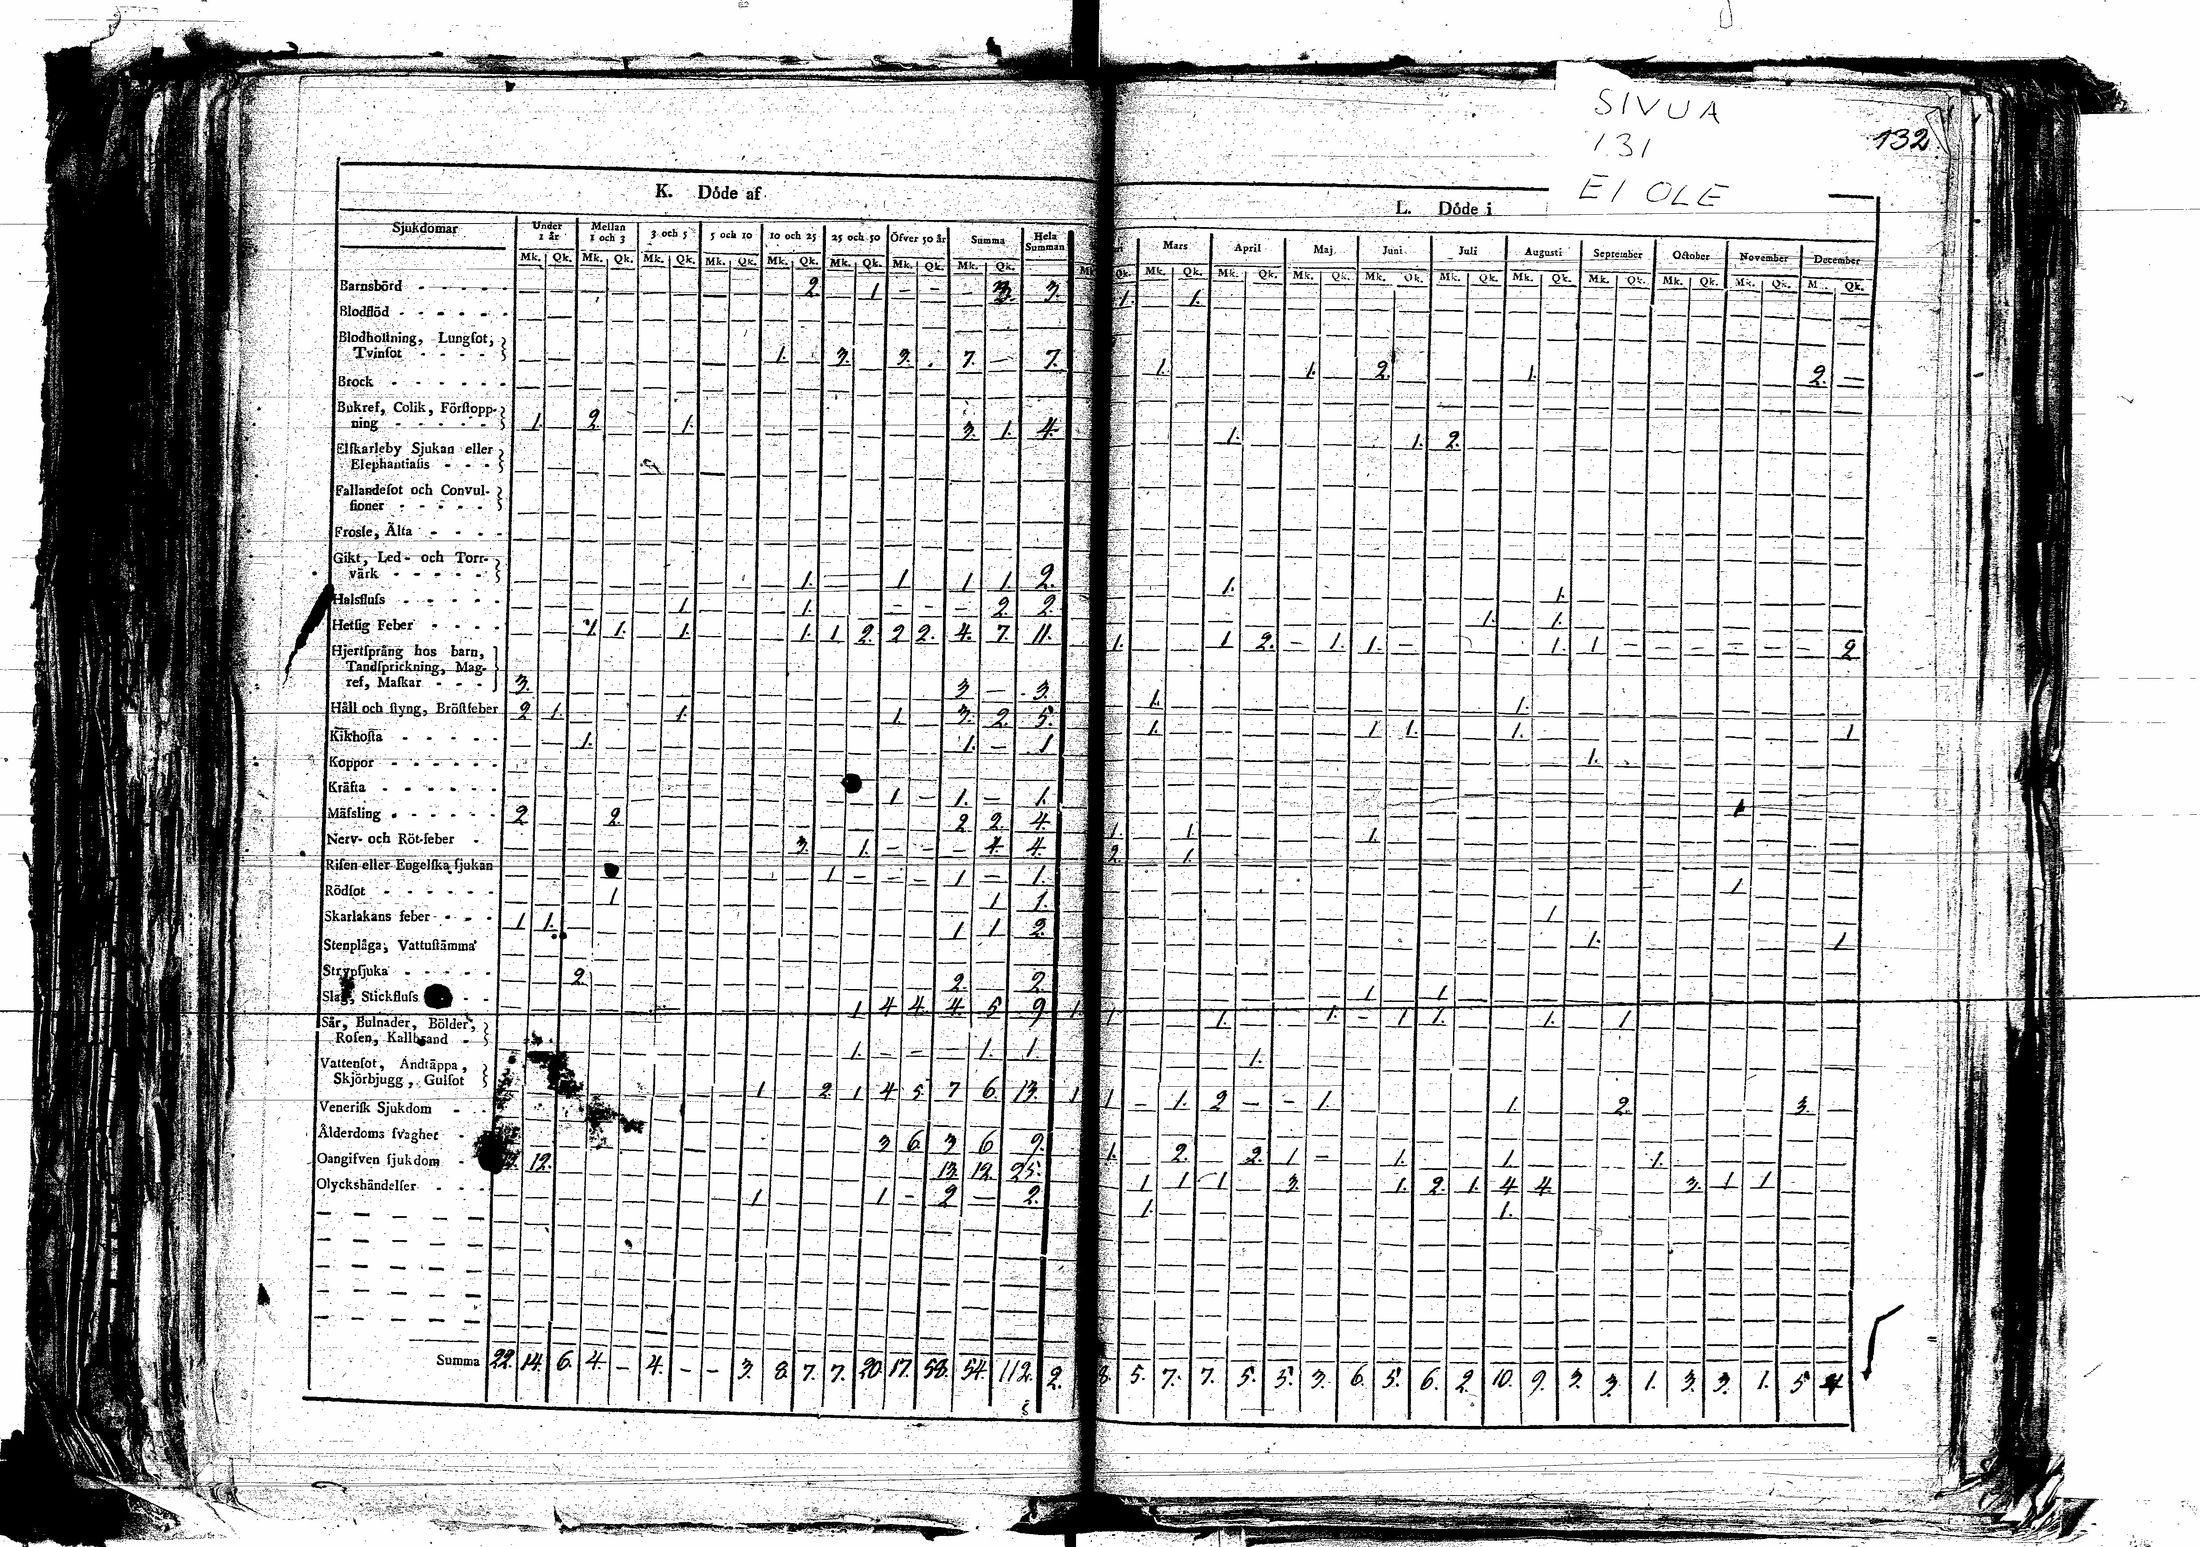 SIVUA
131
EI OLE
132
K. Dóde af
L. Dóde i
Sjukdomar Under 1 år Mellan 1 och 3 3 och 5 5 och 10 10 och 25 25 och 50 Öfver 50 år Summa Hela Summan Mars April Maj Juni Juli Augusti September October November December
Mk. Qk. Mk. Qk. Mk. Qk. Mk. Qk. Mk. Qk. Mk. Qk. Mk. Qk. Mk. Qk. Qk. Mk. Qk. Mk. Qk. Mk. Qk. Mk. Qk. Mk. Qk. Mk. Qk. Mk. Qk. Mk. Qk. Mk. Qk. Qk.
Barnsbörd 2. 1 3. 3. 1. 1.
Blodflöd
Blodhostning, Lungsot,
Tvinsot 1. 3. 3. 7. 7. 1. 1. 2. 1. 2.
Brock
Bukref, Colik, Förstopp-
ning 1. 2 1. 3. 1. 4. 1. 1. 2.
Elfkarleby Sjukan eller
Elephantiasis
Fallandesot och Convul-
sioner
Frossa, Älta
Gikt, Led- och Torr-
värk 1. 1 1 1. 2. 1. 1.
Halsfluss 1. 1. 2. 2. 1. 1.
Hetsig Feber 1. 1. 1. 1. 1 2. 2 2. 4. 7. 11. 1. 1 2. 1. 1. 1. 1 2
Hjertsprång hos barn,
Tandsprickning, Mag-
ref, Maskar 3. 3 3. 1. 1.
Håll och styng, Bröstfeber 2 1. 1. 1. 3. 2. 5. 1. 1 1. 1. 1
Kikhosta 1. 1. 1 1.
Koppor
Kräfta 1 1. 1. 1
Mässling 2 2. 2 2. 4. 1. 1. 1.
Nerv- och Röt-feber 3. 1. 4. 4. 2. 1.
Risen eller Engelska sjukan 1 1 1. 1
Rödsot 1 1 1. 1
Skarlakans feber 1 1. 1 1 2. 1. 1
Stenplåga, Vattustämma
Strypsjuka 2 2. 2 1 1
Slag, Stickfluss 1. 4 4. 4. 5 9 1. 1 1. 1. 1 1. 1. 1
Sår, Bulnader, Bölder,
Rosen, Kallbrand 1. 1. 1. 1.
Vattensot, Andtäppa,
Skjörbjugg, Gulsot 1 2. 1 4 5. 7 6. 13. 1 1 1. 2 1. 1. 2. 3.
Venerisk Sjukdom
Ålderdoms svaghet 3 6. 3 6 9. 1. 2. 2. 1 1. 1. 1.
Oangifven sjukdom 12. 13 12 25. 1 1 1 3. 1. 2. 1. 4 4. 3. 1 1
Olyckshändelser 1 1 2 2. 1. 1.
Summa 22. 14. 6. 4. – 4. – – 3. 8. 7. 7. 20. 17. 58. 54. 112. 2. 8. 5. 7. 7. 5. 5. 3. 6. 5. 6. 2. 10. 9. 3. 3. 1. 3. 3. 1. 5